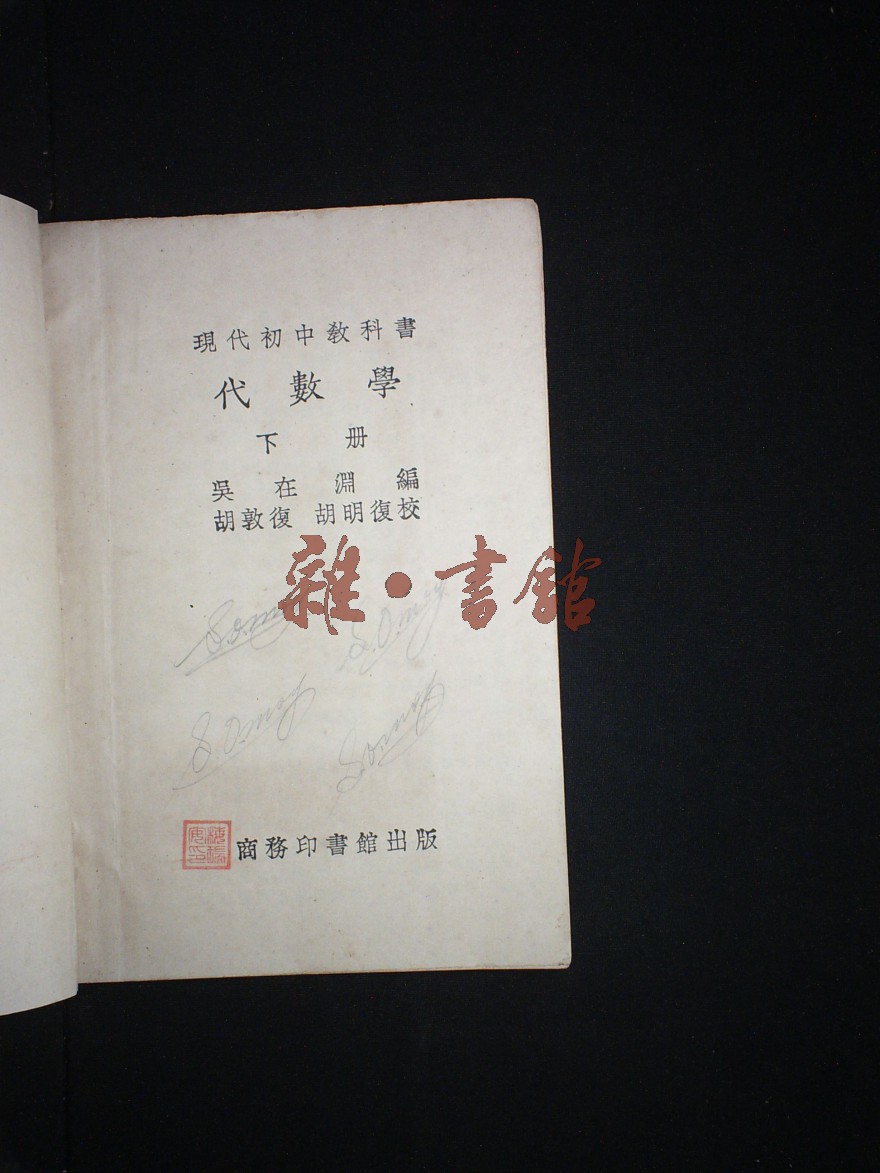 現代初中教科書
代數學
下冊
吳在淵編
胡敦復 胡明復校
雜·書館
商務印書館出版